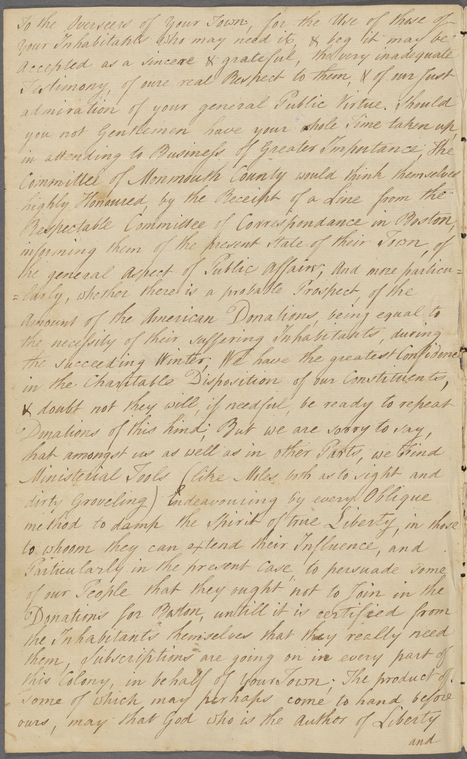 To the Overseers of Your Town, for the Use of those of
Your Inhabitants who may need it, & beg it may be
Accepted as a sincere & grateful, tho very inadequate
Testimony, of oure real Respect to them, & of our just
admiration of your general Public Virtue. Should
you not Gentlemen have your whole Time taken up,
in attending to Business of Greater Importance; The
Committee of Monmouth County would think themselves
highly Honoured by the Receipt of a Line from the
Respectable Committee of Correspondance in Boston,
informing them of the present State of their Town, of
the general Aspect of Public Affairs; And more particu=
=larly, whether there is a probable Prospect of the
Amount of the American Donations, being equal to
the necessity of their suffering Inhabitants, during
the succeeding Winter; We have the greatest Confidence
in the Charitable Disposition of our Constituents,
& doubt not they will, if needful, be ready to repeat
Donations of this kind; But we are sorry to say,
that amongst us as well as in other Parts, we find
Ministerial Tools (like Moles, both as to sight and
dirty Groveling) Endeavouring by every Oblique
method to damp the Spirit of true Liberty, in those
to whom they can extend their Influence, and
Particularly in the present Case, to persuade some
of our People that they ought not to Join in the
Donations for Boston, untill it is certified from
the Inhabitants themselves that they really need
them, Subscriptions are going on in every part of
this Colony, in behalf of Your Town; The product of
some of which may perhaps come to hand before
ours, may that God who is the Author of Liberty
and